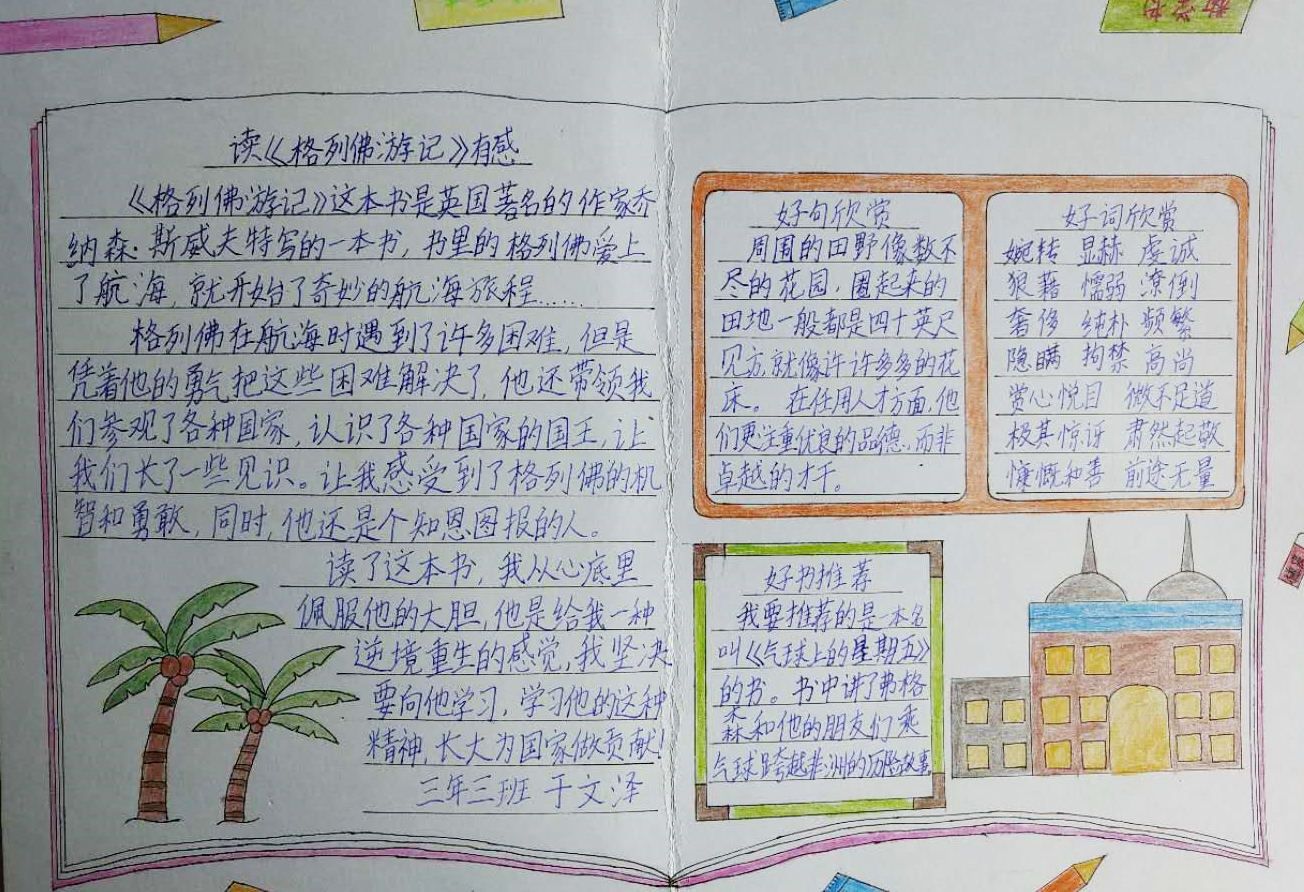 读《格列佛游记》有感
《格列佛游记》这本书是英国著名的作家乔
纳森·斯威夫特写的一本书,书里的格列佛爱上
了航海,就开始了奇妙的航海旅程……
格列佛在航海时遇到了许多困难,但是
凭着他的勇气把这些困难解决了,他还带领我
们参观了各种国家,认识了各种国家的国王,让
我们长了一些见识。让我感受到了格列佛的机
智和勇敢,同时,他还是个知恩图报的人。
读了这本书,我从心底里
佩服他的大胆,他是给我一种
逆境重生的感觉,我坚决
要向他学习,学习他的这种
精神,长大为国家做贡献!
三年三班 于文泽
好句欣赏
周围的田野像数不
尽的花园,圈起来的
田地一般都是四十英尺
见方,就像许许多多的花
床。 在任用人才方面,他
们更注重优良的品德,而非
卓越的才干。
好词欣赏
婉转 显赫 虔诚
狠藉 懦弱 潦倒
奢侈 纯朴 频繁
隐瞒 拘禁 高尚
赏心悦目 微不足道
极其惊讶 肃然起敬
慷慨和善 前途无量
好书推荐
我要推荐的是一本名
叫《气球上的星期五》
的书。书中讲了弗格
森和他的朋友们乘
气球跨越非洲的历险故事